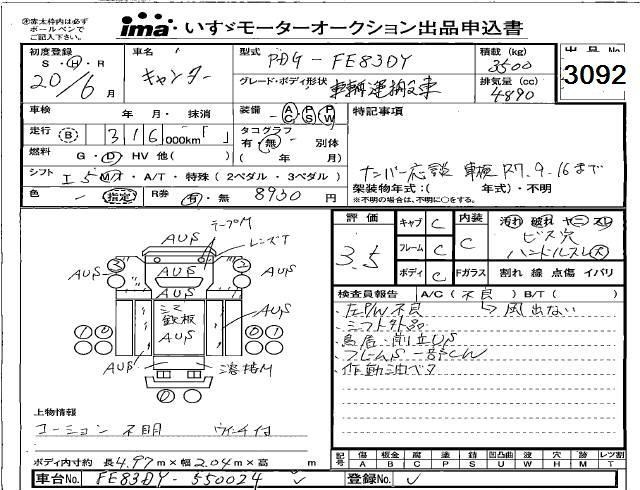 ※赤太枠内は必ずボールペンでご記入下さい。
ima いすゞモーターオークション出品申込書
初度登録 S・H・R 20/6 月
車名 キャンター
型式 PDG-FE83DY
グレード・ボディ形状 車輌運搬車
積載 (kg) 3500
排気量 (cc) 4890
出品No 3092
車検 年 月・抹消
装備 AC PS PW
特記事項
走行 B 316 000km「 」
タコグラフ 有・無 別体 ( 年 月)
燃料 G・D・HV 他( )
ナンバー応談 車検R7.9.16まで
シフト I 5 M/T・A/T・特殊 (2ペダル・3ペダル)
架装物年式:( 年式)・不明
※不明の場合は、不明に○をする。
色 - 指定
R券 有・無 8930 円
評価 3.5
キャブ C
フレーム C
ボディ C
内装 C
汚れ 破れ ヤニ スレ
ビス穴
ハンドルスレ大
Fガラス 割れ 線 点傷 イバリ
検査員報告 A/C(不良) B/T( )
└→風出ない
・左PW不良
・シフト外品
・鳥居・煽立US
・フレームS一部CW
・作動油ベタ
テープM
レンズT
AUS
AUS
AUS
AUS
シマ鉄板
AUS
AUS
AUS
溶接M
上物情報
コーション 不明 ウィンチ付
ボディ内寸約 長4.97m×幅2.04m×高 m
記号 傷A 板金B 腐C 塗P 錆S 凹凸曲U 波W 穴H 跡M レツ割T
車台No. FE83DY-550024
登録No.